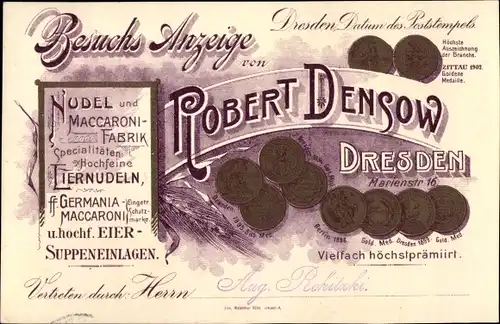 Besuchs Anzeige
Dresden, Datum des Poststempels.
von
Höchste
Auszeichnung
der Branche.
ZITTAU 1902.
Goldene
Medaille.
ROBERT DENSOW
DRESDEN
Marienstr 16
NUDEL und
MACCARONI-
FABRIK
Specialitäten
Hochfeine
EIERNUDELN,
ff GERMANIA-
MACCARONI
Eingetr.
Schutz-
marke.
u. hochf. EIER-
SUPPENEINLAGEN.
Berlin 1896.
Gold. Med. Dresden 1899. Gold. Med.
Vielfach höchstprämiirt.
Vertreten durch: Herrn
Aug.